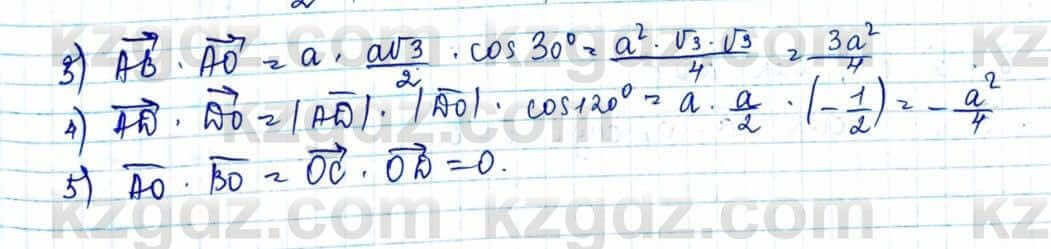 3) AB⃗ · AO⃗ = a · a√3/2 · cos 30° = a² · √3 · √3/4 = 3a²/4
4) AD⃗ · DO⃗ = |AD| · |DO| · cos 120° = a · a/2 · (-1/2) = -a²/4
5) AO · BO = OC⃗ · OD⃗ = 0.
kzgdz.com